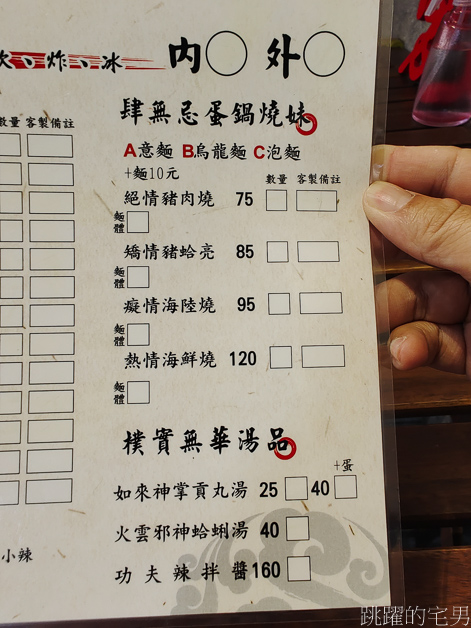 炸、冰 內 外
肆無忌蛋鍋燒妹
A意麵 B烏龍麵 C泡麵
+麵10元
數量 客製備註
數量 客製備註
絕情豬肉燒 75
麵體
矯情豬蛤亮 85
麵體
癡情海陸燒 95
麵體
熱情海鮮燒 120
麵體
樸實無華湯品
+蛋
如來神掌貢丸湯 25 40
火雲邪神蛤蜊湯 40
功夫辣拌醬 160
小辣
跳躍的宅男